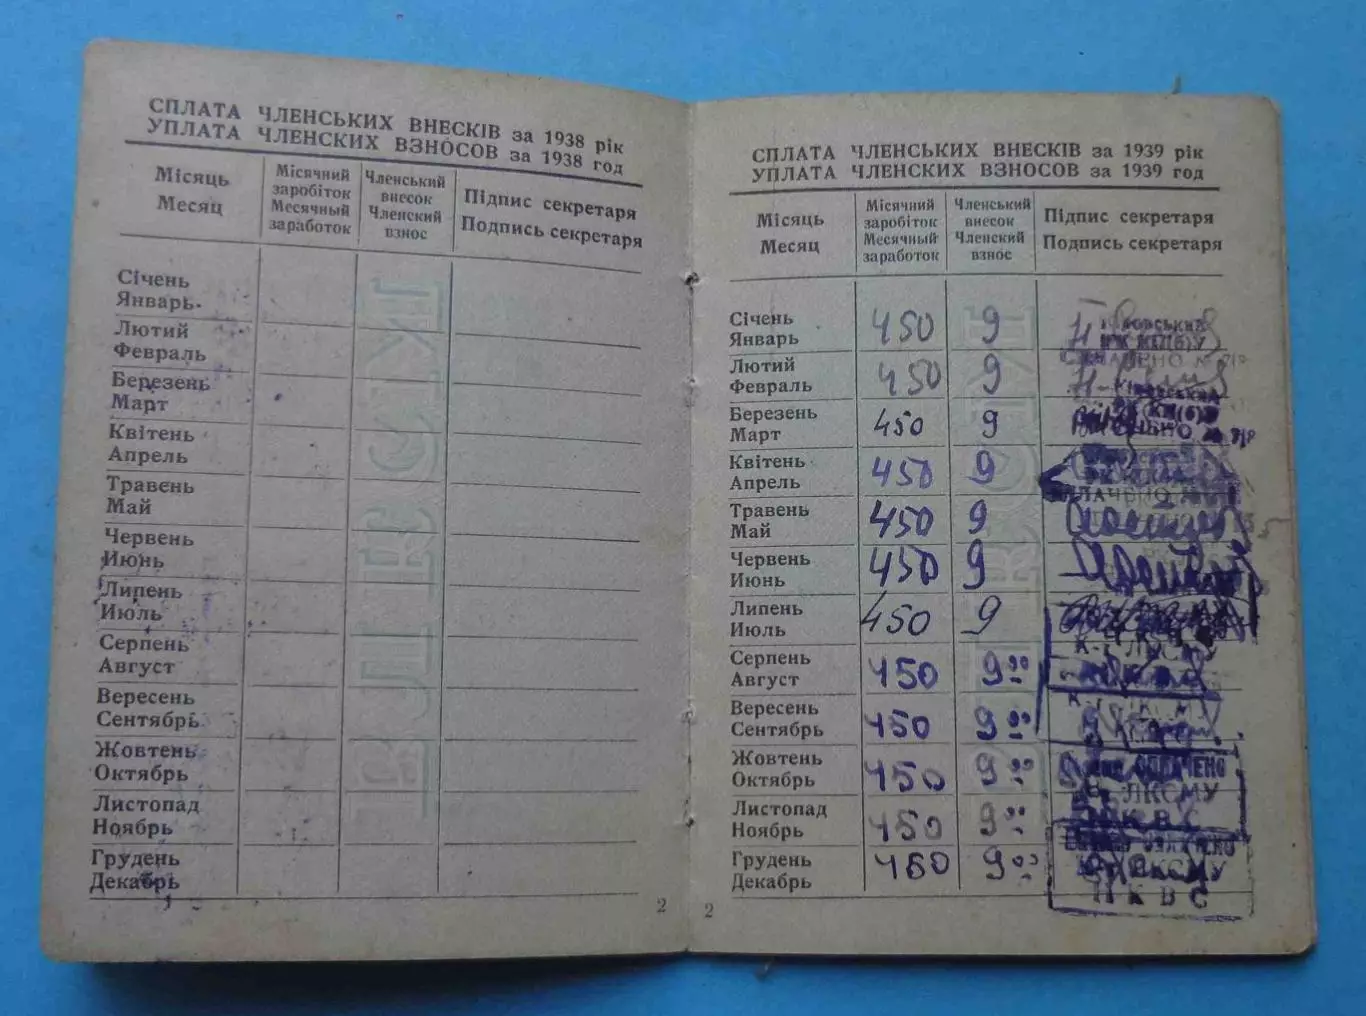 СПЛАТА ЧЛЕНСЬКИХ ВНЕСКІВ за 1938 рік
УПЛАТА ЧЛЕНСКИХ ВЗНОСОВ за 1938 год
Місяць
Месяц
Місячний
заробіток
Месячный
заработок
Членський
внесок
Членский
взнос
Підпис секретаря
Подпись секретаря
Січень
Январь
Лютий
Февраль
Березень
Март
Квітень
Апрель
Травень
Май
Червень
Июнь
Липень
Июль
Серпень
Август
Вересень
Сентябрь
Жовтень
Октябрь
Листопад
Ноябрь
Грудень
Декабрь
2
СПЛАТА ЧЛЕНСЬКИХ ВНЕСКІВ за 1939 рік
УПЛАТА ЧЛЕНСКИХ ВЗНОСОВ за 1939 год
Місяць
Месяц
Місячний
заробіток
Месячный
заработок
Членський
внесок
Членский
взнос
Підпис секретаря
Подпись секретаря
Січень
Январь 450 9
Лютий
Февраль 450 9
Березень
Март 450 9
Квітень
Апрель 450 9
Травень
Май 450 9
Червень
Июнь 450 9
Липень
Июль 450 9
Серпень
Август 450 9
К-Т ЛКСМУ
Вересень
Сентябрь 450 9
Жовтень
Октябрь 450 9
ЛКСМУ
Листопад
Ноябрь 450 9
НКВС
Грудень
Декабрь 450 9
ЛКСМУ
НКВС
2